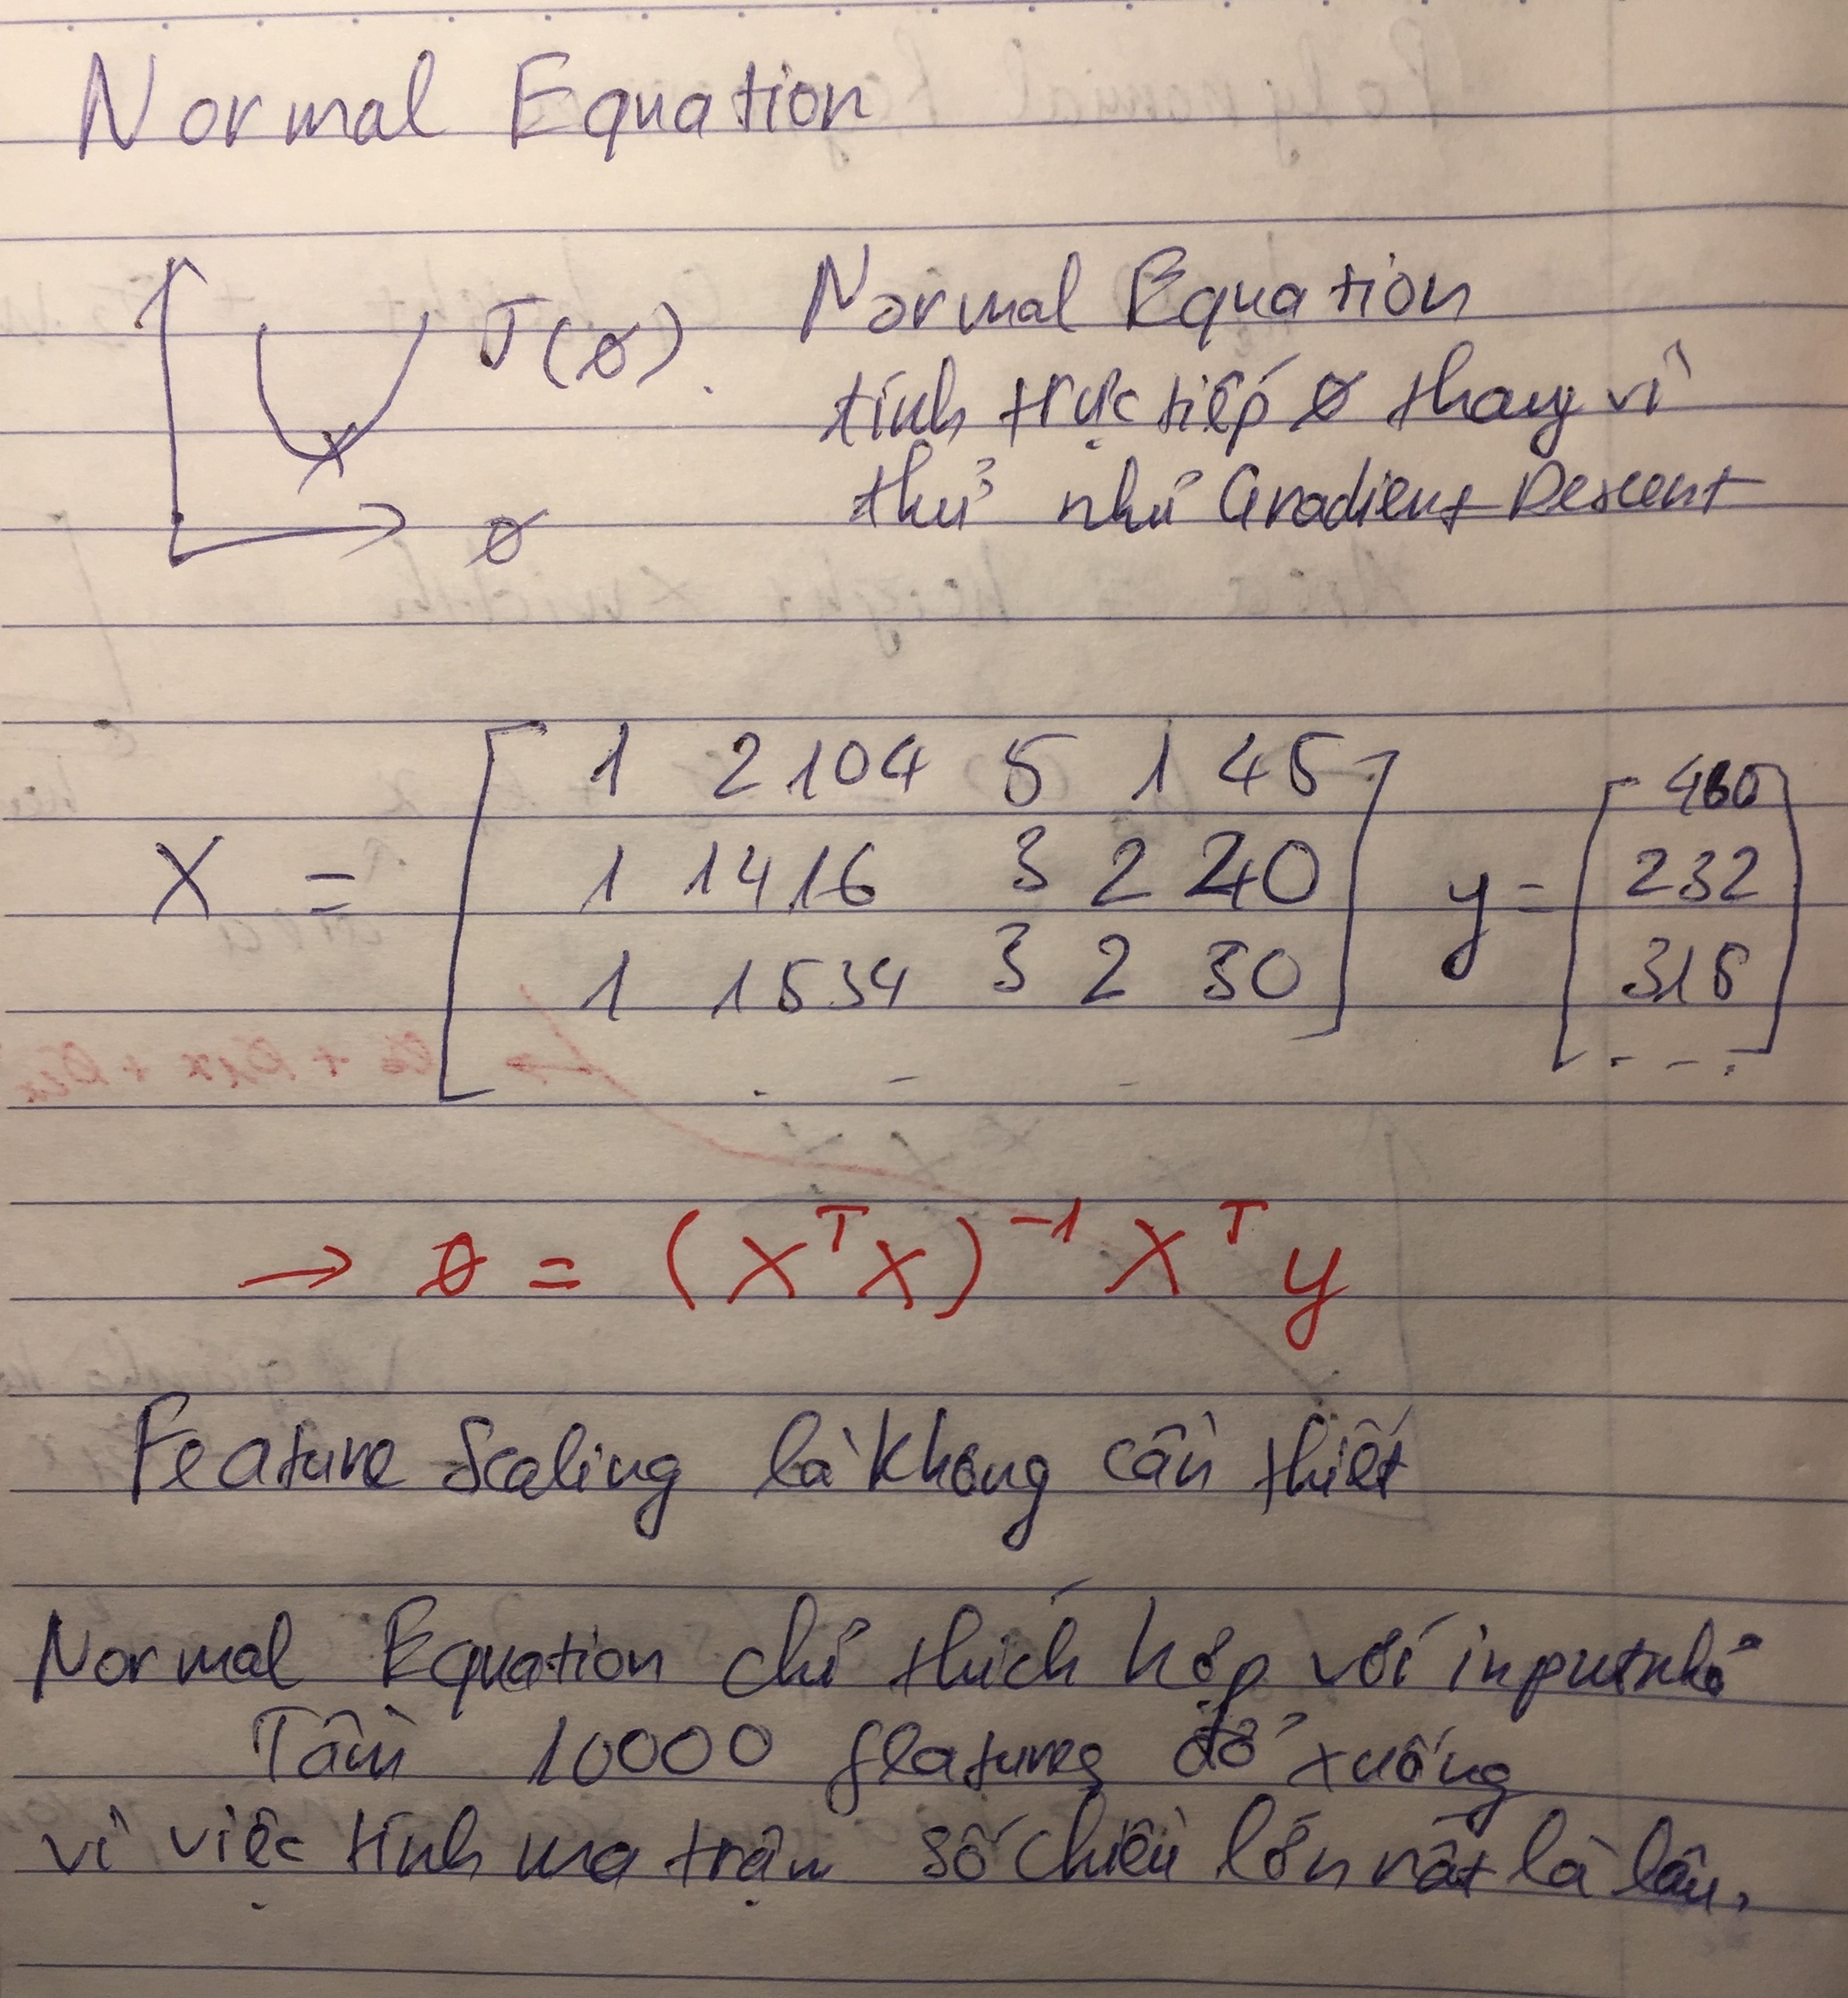 Normal Equation
J(θ).
θ
Normal Equation
tính trực tiếp θ thay vì
thử như Gradient Descent
X = [ 1 2104 5 1 45 ]
1 1416 3 2 40
1 1534 3 2 30
y = [ 460 ]
232
315
→ θ = (XᵀX)⁻¹ Xᵀ y
Feature Scaling là không cần thiết
Normal Equation chỉ thích hợp với input nhỏ
Tầm 10000 features đổ xuống
vì việc tính ma trận số chiều lớn rất là lâu.